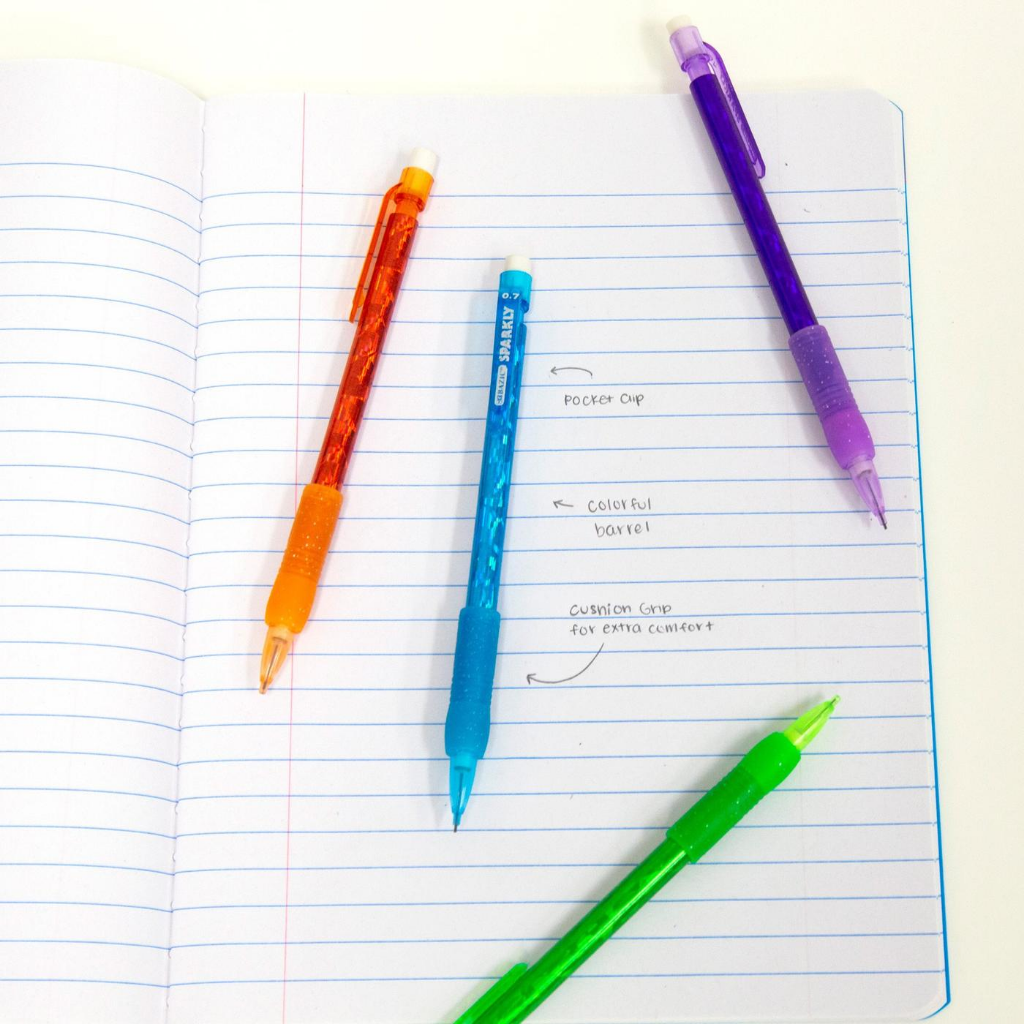 0.7
SPARKLY
BAZIC
Pocket Clip
colorful
barrel
Cushion Grip
for extra comfort